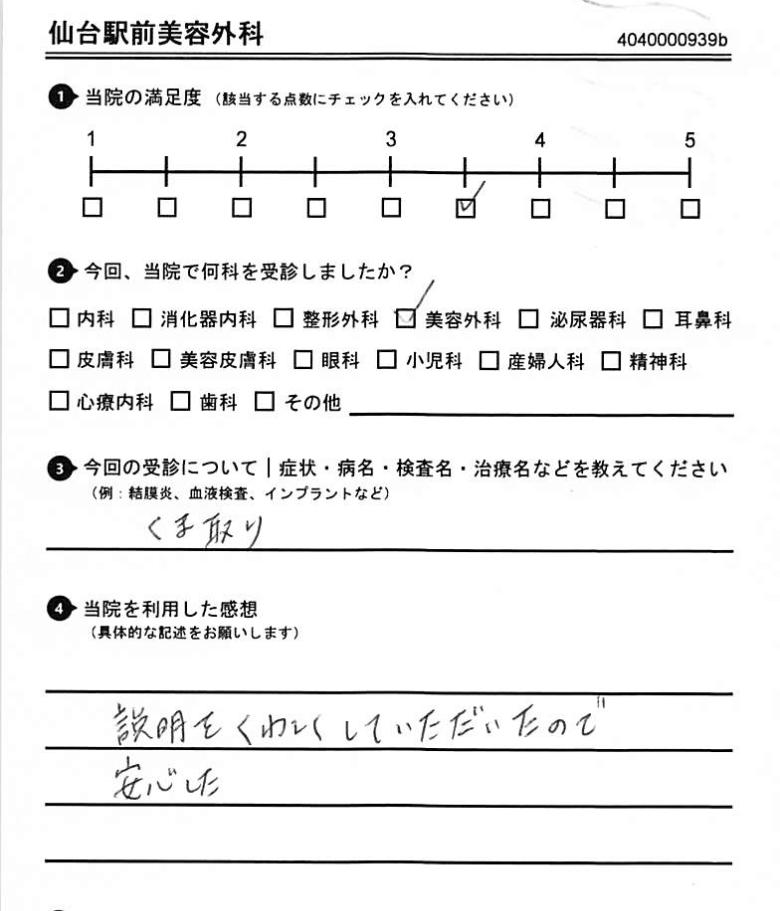 仙台駅前美容外科
4040000939b
1 当院の満足度 (該当する点数にチェックを入れてください)
1 2 3 4 5
2 今回、当院で何科を受診しましたか?
内科 消化器内科 整形外科 美容外科 泌尿器科 耳鼻科
皮膚科 美容皮膚科 眼科 小児科 産婦人科 精神科
心療内科 歯科 その他
3 今回の受診について|症状・病名・検査名・治療名などを教えてください
(例:結膜炎、血液検査、インプラントなど)
くま取り
4 当院を利用した感想
(具体的な記述をお願いします)
説明をくわしくしていただいたので
安心した